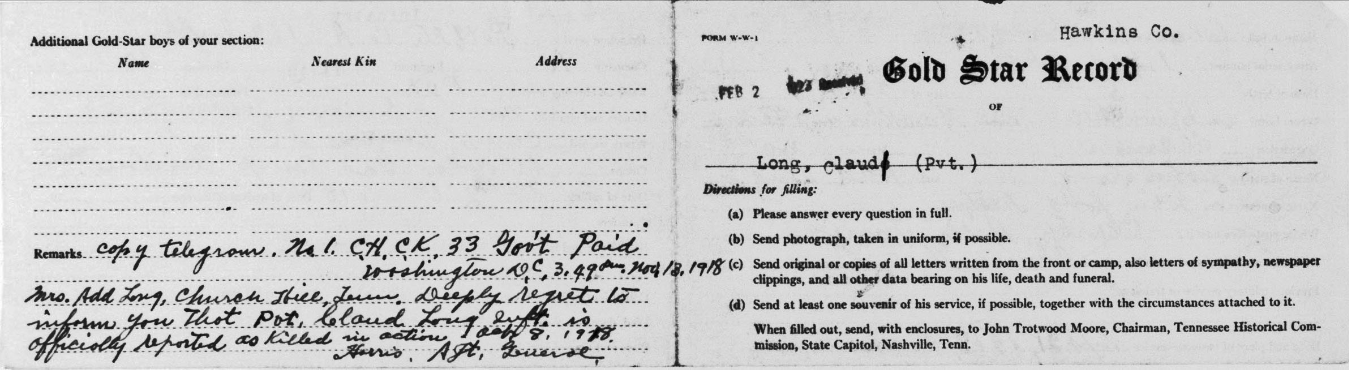 Additional Gold-Star boys of your section:
Name Nearest Kin Address
Remarks copy telegram. No 1. CH, CK, 33 Gov't Paid
Washington DC, 3.49 Nov 13, 1918
Mrs. Add Long, Church Hill, Tenn. Deeply regret to
inform you that Pvt. Claud Long Inft. is
officially reported as killed in action 8, 1918.
Harris, Ajt. General
FORM W-W-1
Hawkins Co.
FEB 2
Gold Star Record
OF
Long, Claud (Pvt.)
Directions for filling:
(a) Please answer every question in full.
(b) Send photograph, taken in uniform, if possible.
(c) Send original or copies of all letters written from the front or camp, also letters of sympathy, newspaper
clippings, and all other data bearing on his life, death and funeral.
(d) Send at least one souvenir of his service, if possible, together with the circumstances attached to it.
When filled out, send, with enclosures, to John Trotwood Moore, Chairman, Tennessee Historical Com-
mission, State Capitol, Nashville, Tenn.